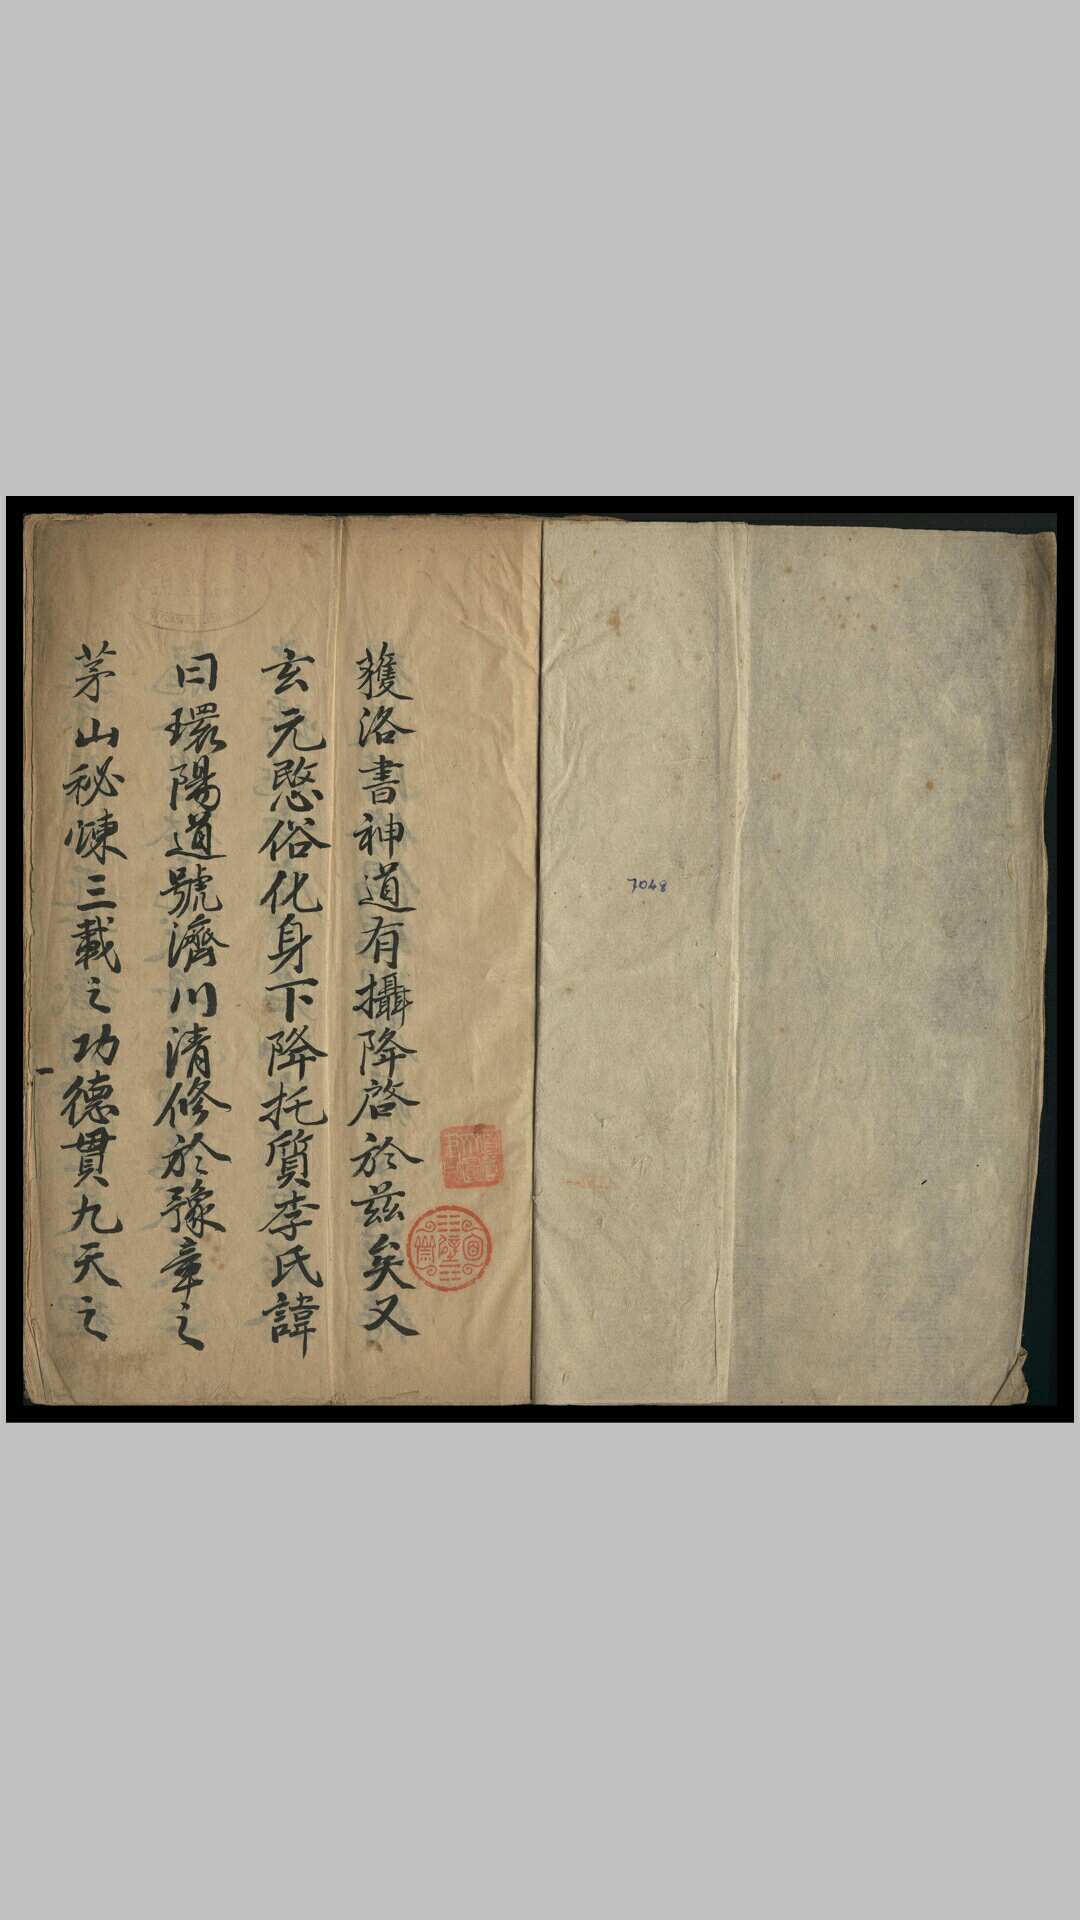 獲洛書神道有攝降啓於茲矣又
玄元愍俗化身下降托質李氏諱
曰環陽道號濟川清修於豫章之
茅山秘煉三載之功德貫九天之
7048